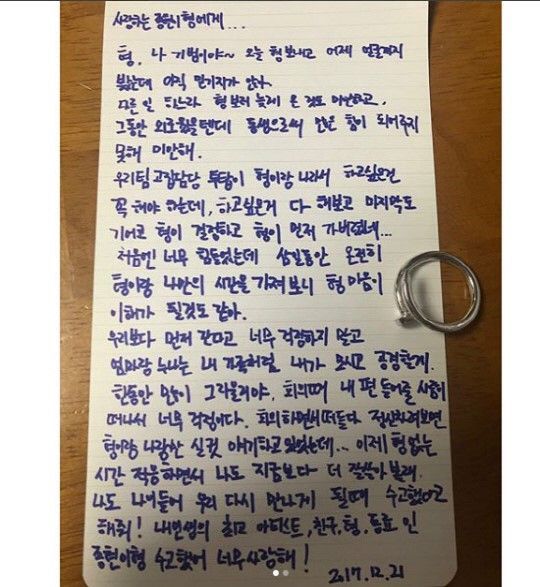 사랑하는 종현이형에게...
형, 나 기범이야~ 오늘 형 보내고 어제 얼굴까지
봤는데 아직 믿기지가 않아.
다른 일 하느라 형 보러 늦게 온 것도 미안하고,
그동안 외로웠을텐데 동생으로써 많은 힘이 되어주지
못해 미안해.
우리팀 고집담당 투탑이 형이랑 나라서 하고싶은건
꼭 해야 하는데, 하고싶은거 다 해보고 마지막도
기어코 형이 결정하고 형이 먼저 가버렸네...
처음엔 너무 힘들었는데 삼일동안 온전히
형이랑 나만의 시간을 가져보니 형 마음이
이해가 될것도 같아.
우리보다 먼저 간다고 너무 걱정하지 말고
엄마랑 누나는 내 가족처럼 내가 모시고 공경할게.
한동안 많이 그리울거야. 회의때 내 편 들어줄 사람이
떠나서 너무 걱정이다. 회의하면서 떠들다 정신차려보면
형이랑 나랑만 실컷 얘기하고 있었는데... 이제 형 없는
시간 적응하면서 나도 지금보다 더 잘 살아볼래.
나도 나이들어 우리 다시 만나게 될때 수고했다고
해줘! 내 인생의 최고 아티스트, 친구, 형, 동료 인
종현이형 수고했어 너무 사랑해!
2017.12.21